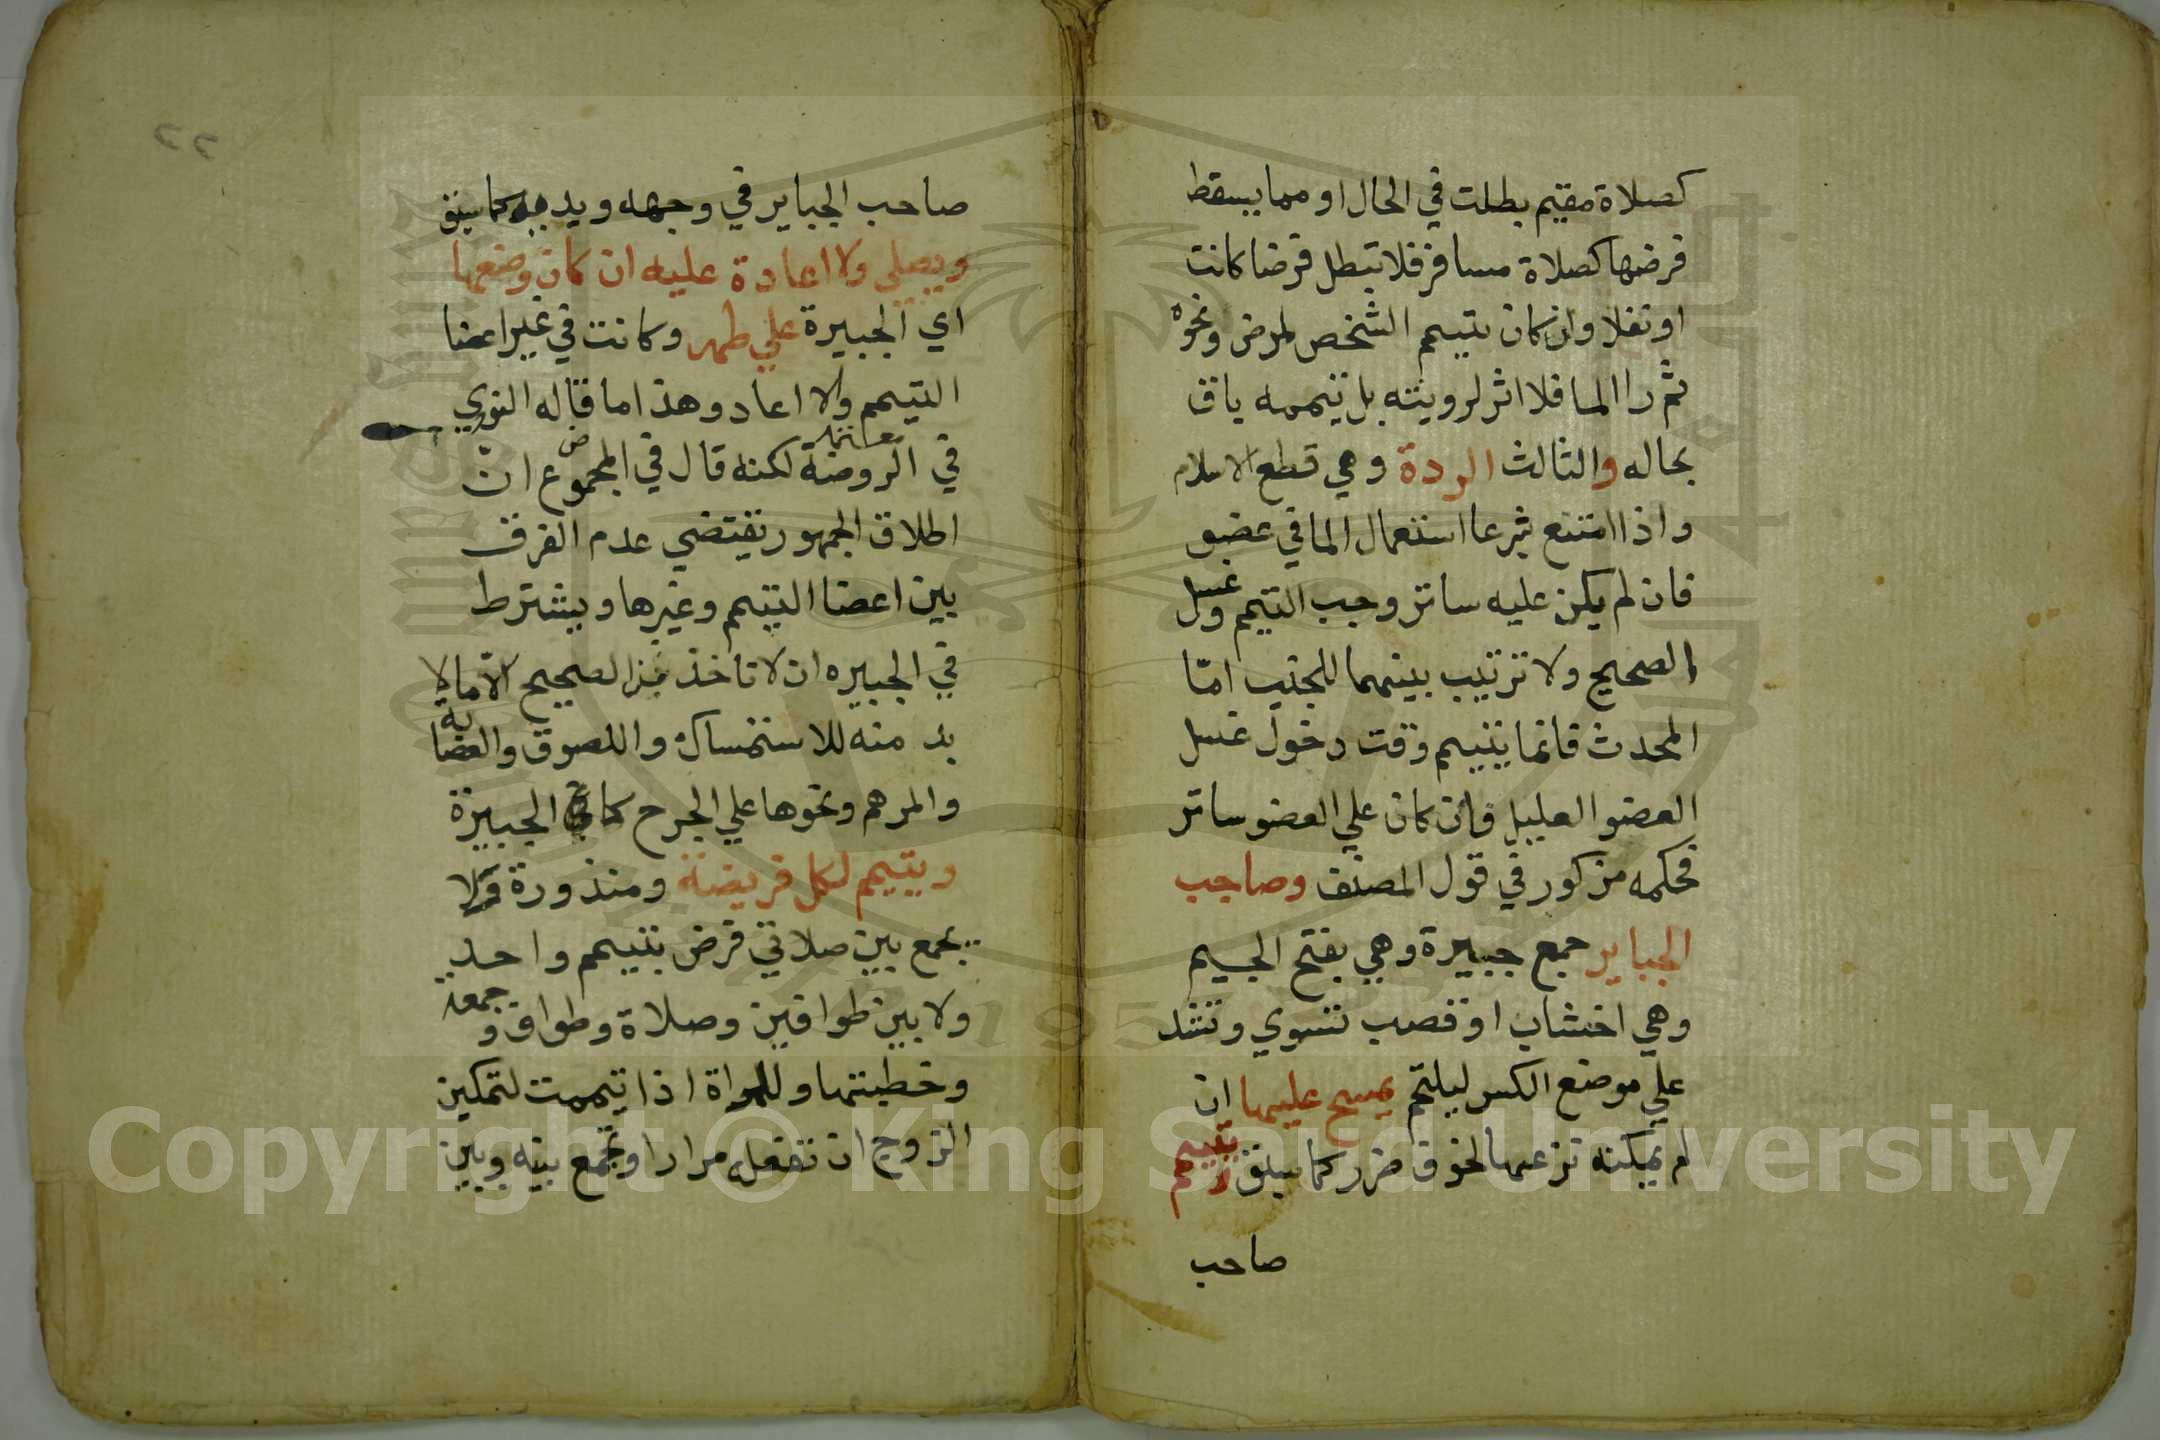 كصلاة مقيم بطلت في الحال او مما يسقط
فرضها كصلاة مسافر فلا تبطل فرضا كانت
او نفلا وان كان تيمم الشخص لمرض ونحوه
ثم را الما فلا اثر لرويته بل تيممه باق
بحاله والثالث الردة وهي قطع الاسلام
واذا امتنع شرعا استعمال الما في عضو
فان لم يكن عليه ساتر وجب التيمم وغسل
الصحيح ولا ترتيب بينهما للجنب امّا
المحدث فانما يتيمم وقت دخول غسل
العضو العليل فان كان علي العضو ساتر
فحكمه مذكور في قول المصنف وصاحب
الجباير جمع جبيرة وهي بفتح الجيم
وهي اخشاب او قصب تسوي وتشد
علي موضع الكسر ليلتحم يمسح عليها ان
لم يمكنه نزعها لخوف ضرر كما سبق ويتيمم
صاحب
٢٢
صاحب الجباير في وجهه ويديه كما سبق
ويصلي ولا اعادة عليه ان كان وضعها
اي الجبيرة علي طهر وكانت في غير اعضا
التيمم والا اعاد وهذا ما قاله النووي
في الروضة لكنه قال في المجموع انّ
اطلاق الجمهور يقتضي عدم الفرق
بين اعضا التيمم وغيرها ويشترط
في الجبيره ان لا تاخذ من الصحيح الّا ما لا
بد منه للاستمساك واللصوق والعصابة
والمرهم ونحوها علي الجرح كالجبيرة
ويتيمم لكل فريضة ومنذورة فلا
يجمع بين صلاتي فرض بتيمم واحد
ولا بين طوافين وصلاة وطواف وجمعة
وخطبتها وللمراة اذا تيممت لتمكين
الزوج ان تفعله مرارا وتجمع بينه وبين
Copyright © King Saud University